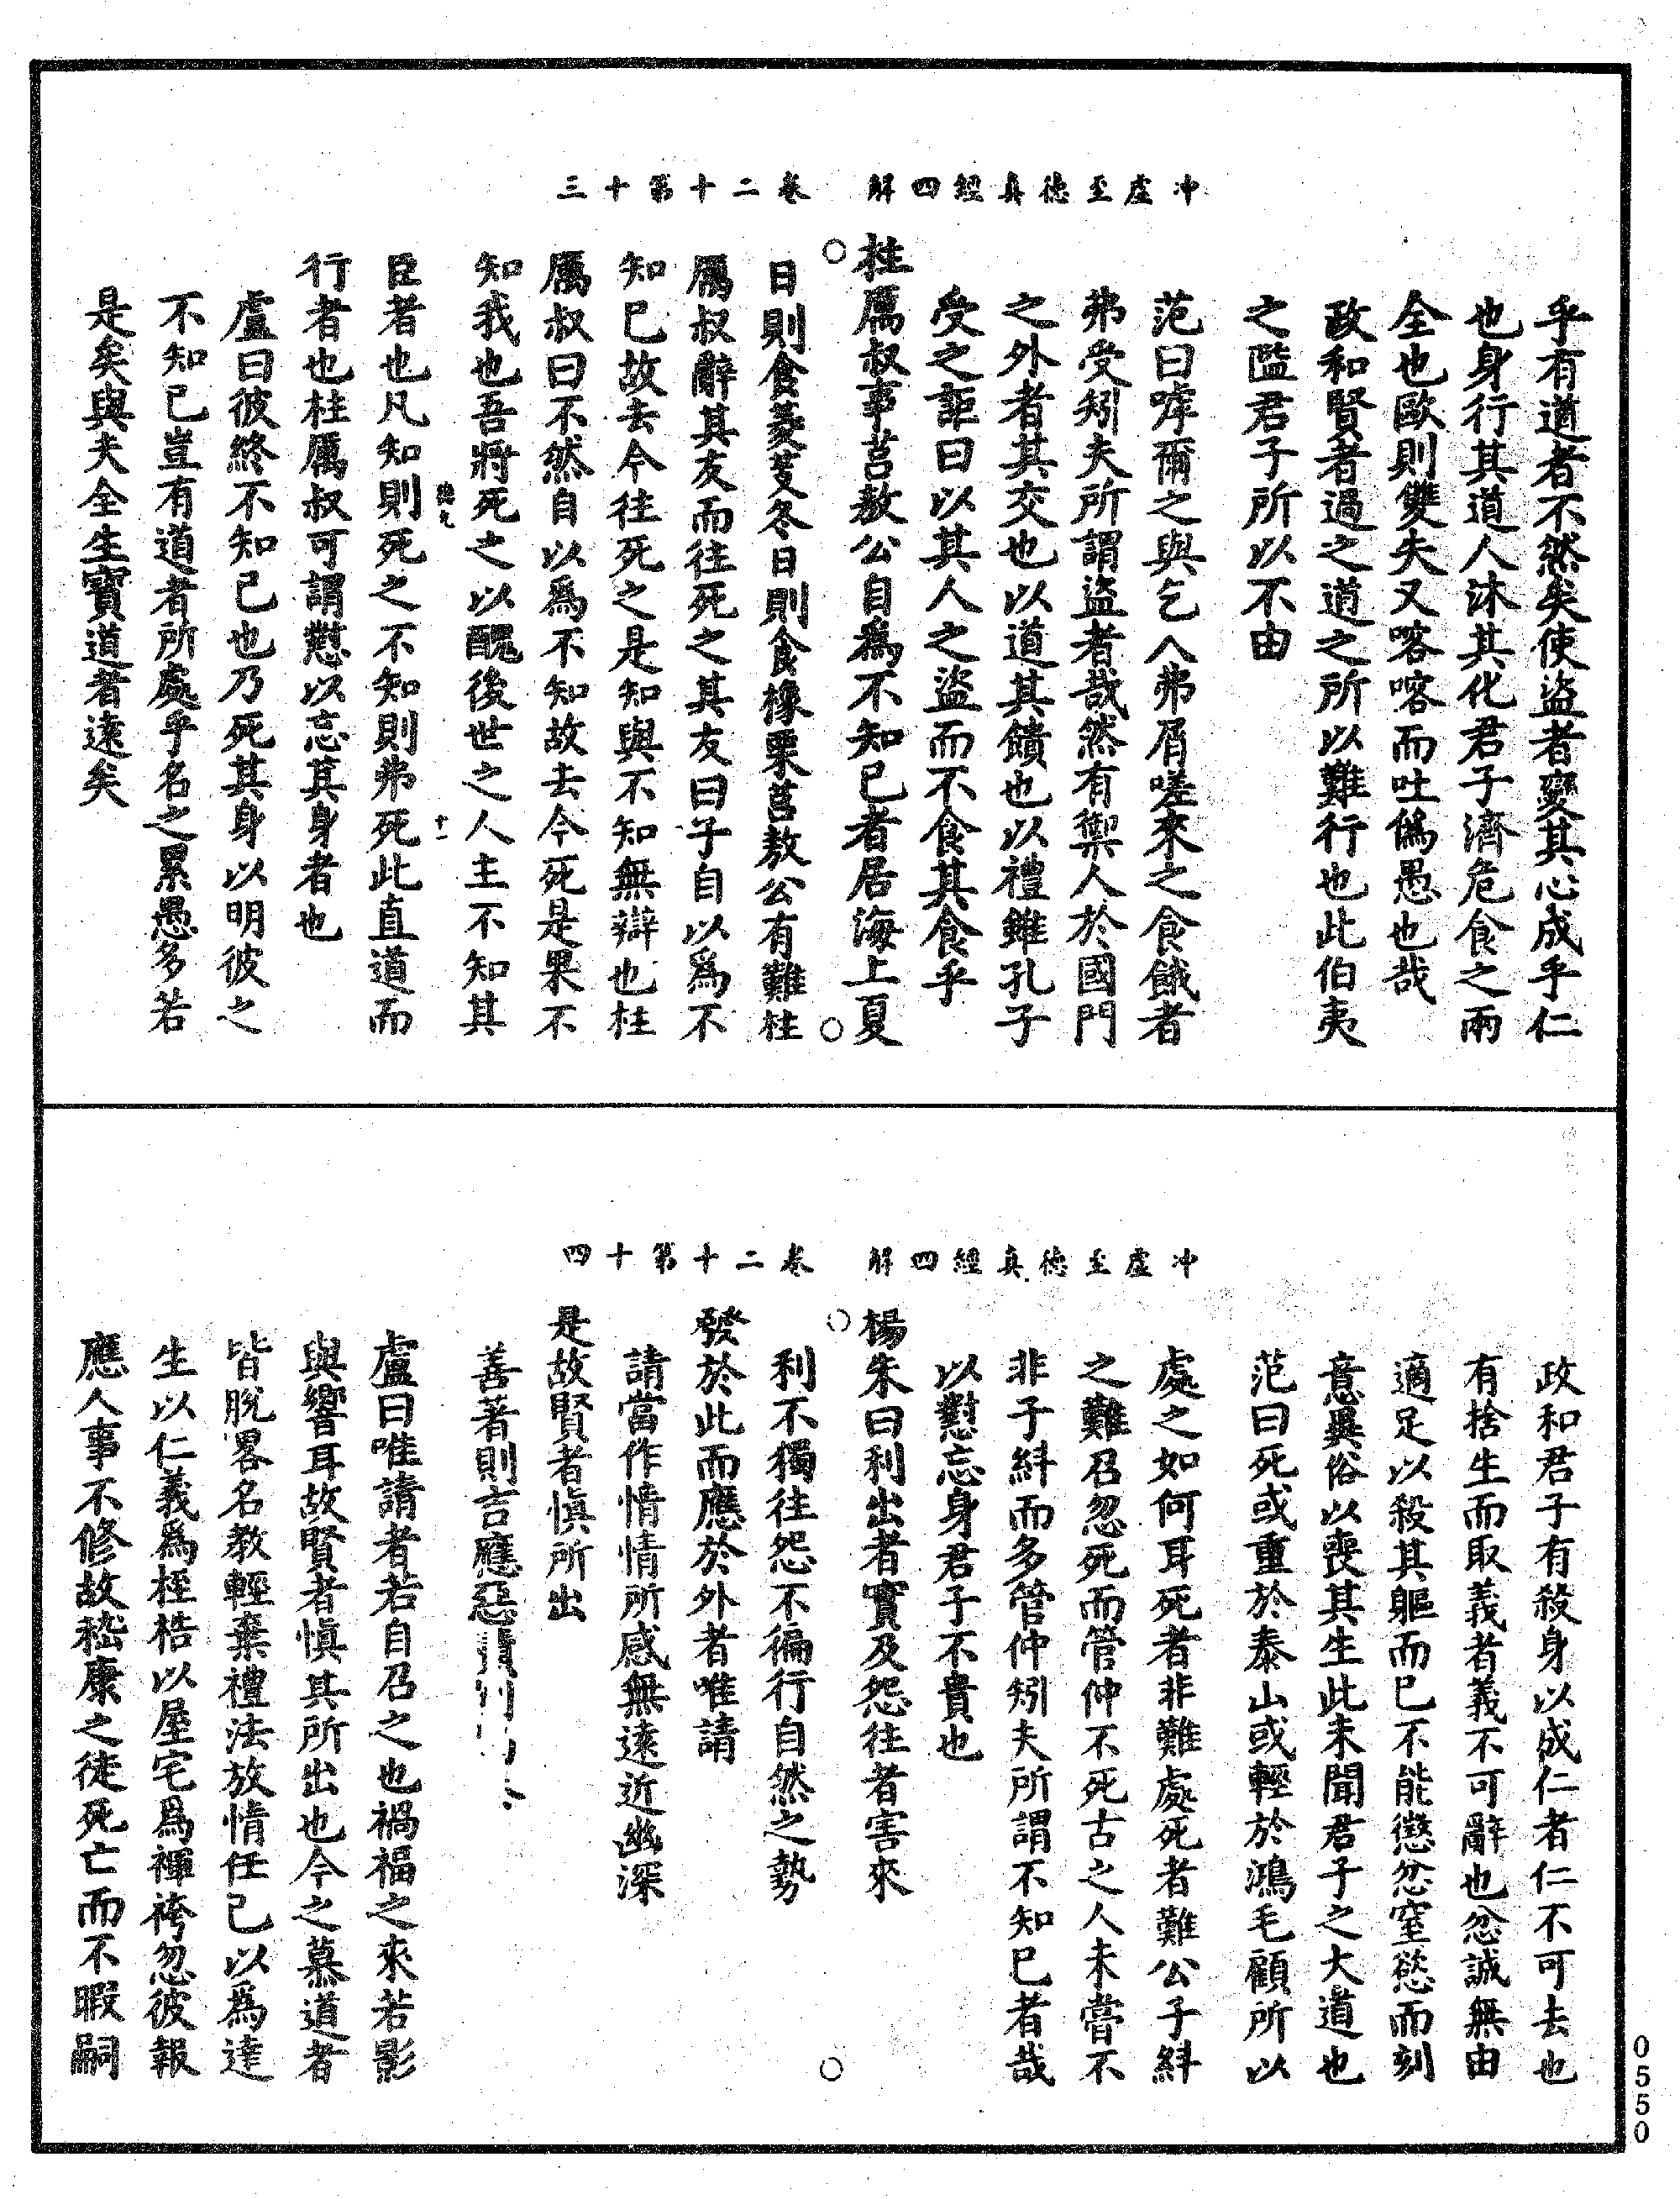 冲虛至德真經四解　卷二十第十三
乎有道者不然矣使盜者變其心成乎仁
也身行其道人沐其化君子濟危食之兩
全也歐則雙失又喀喀而吐偽愚也哉
政和賢者過之道之所以難行也此伯夷
之隘君子所以不由
范曰嘑爾之與乞人弗屑嗟來之食餓者
弗受矧夫所謂盜者哉然有禦人於國門
之外者其交也以道其饋也以禮雖孔子
受之詎曰以其人之盜而不食其食乎
○柱厲叔事莒敖公自為不知已者居海上夏○
日則食菱芰冬日則食橡栗莒敖公有難柱
厲叔辭其友而往死之其友曰子自以為不
知已故去今往死之是知與不知無辯也柱
厲叔曰不然自以為不知故去今死是果不
知我也吾將死之以醜後世之人主不知其
十一
臣者也凡知則死之不知則弗死此直道而
行者也柱厲叔可謂懟以忘其身者也
盧曰彼終不知己也乃死其身以明彼之
不知已豈有道者所處乎名之累愚多若
是矣與夫全生寶道者遠矣
冲虛至德真經四解　卷二十第十四
政和君子有殺身以成仁者仁不可去也
有捨生而取義者義不可辭也忿誠無由
適足以殺其軀而已不能懲忿窒慾而刻
意異俗以喪其生此未聞君子之大道也
范曰死或重於泰山或輕於鴻毛顧所以
處之如何耳死者非難處死者難公子糾
之難召忽死而管仲不死古之人未嘗不
非子糾而多管仲矧夫所謂不知已者哉
以懟忘身君子不貴也
○楊朱曰利出者實及怨往者害來○
利不獨往怨不徧行自然之勢
發於此而應於外者唯請
請當作情情所感無遠近幽深
是故賢者慎所出
善著則吉應惡積則
盧曰唯請者若自召之也禍福之來若影
與響耳故賢者慎其所出也今之慕道者
皆脫畧名教輕棄禮法放情任己以為達
生以仁義為桎梏以屋宅為褌袴忽彼報
應人事不修故嵇康之徒死亡而不暇嗣
0550